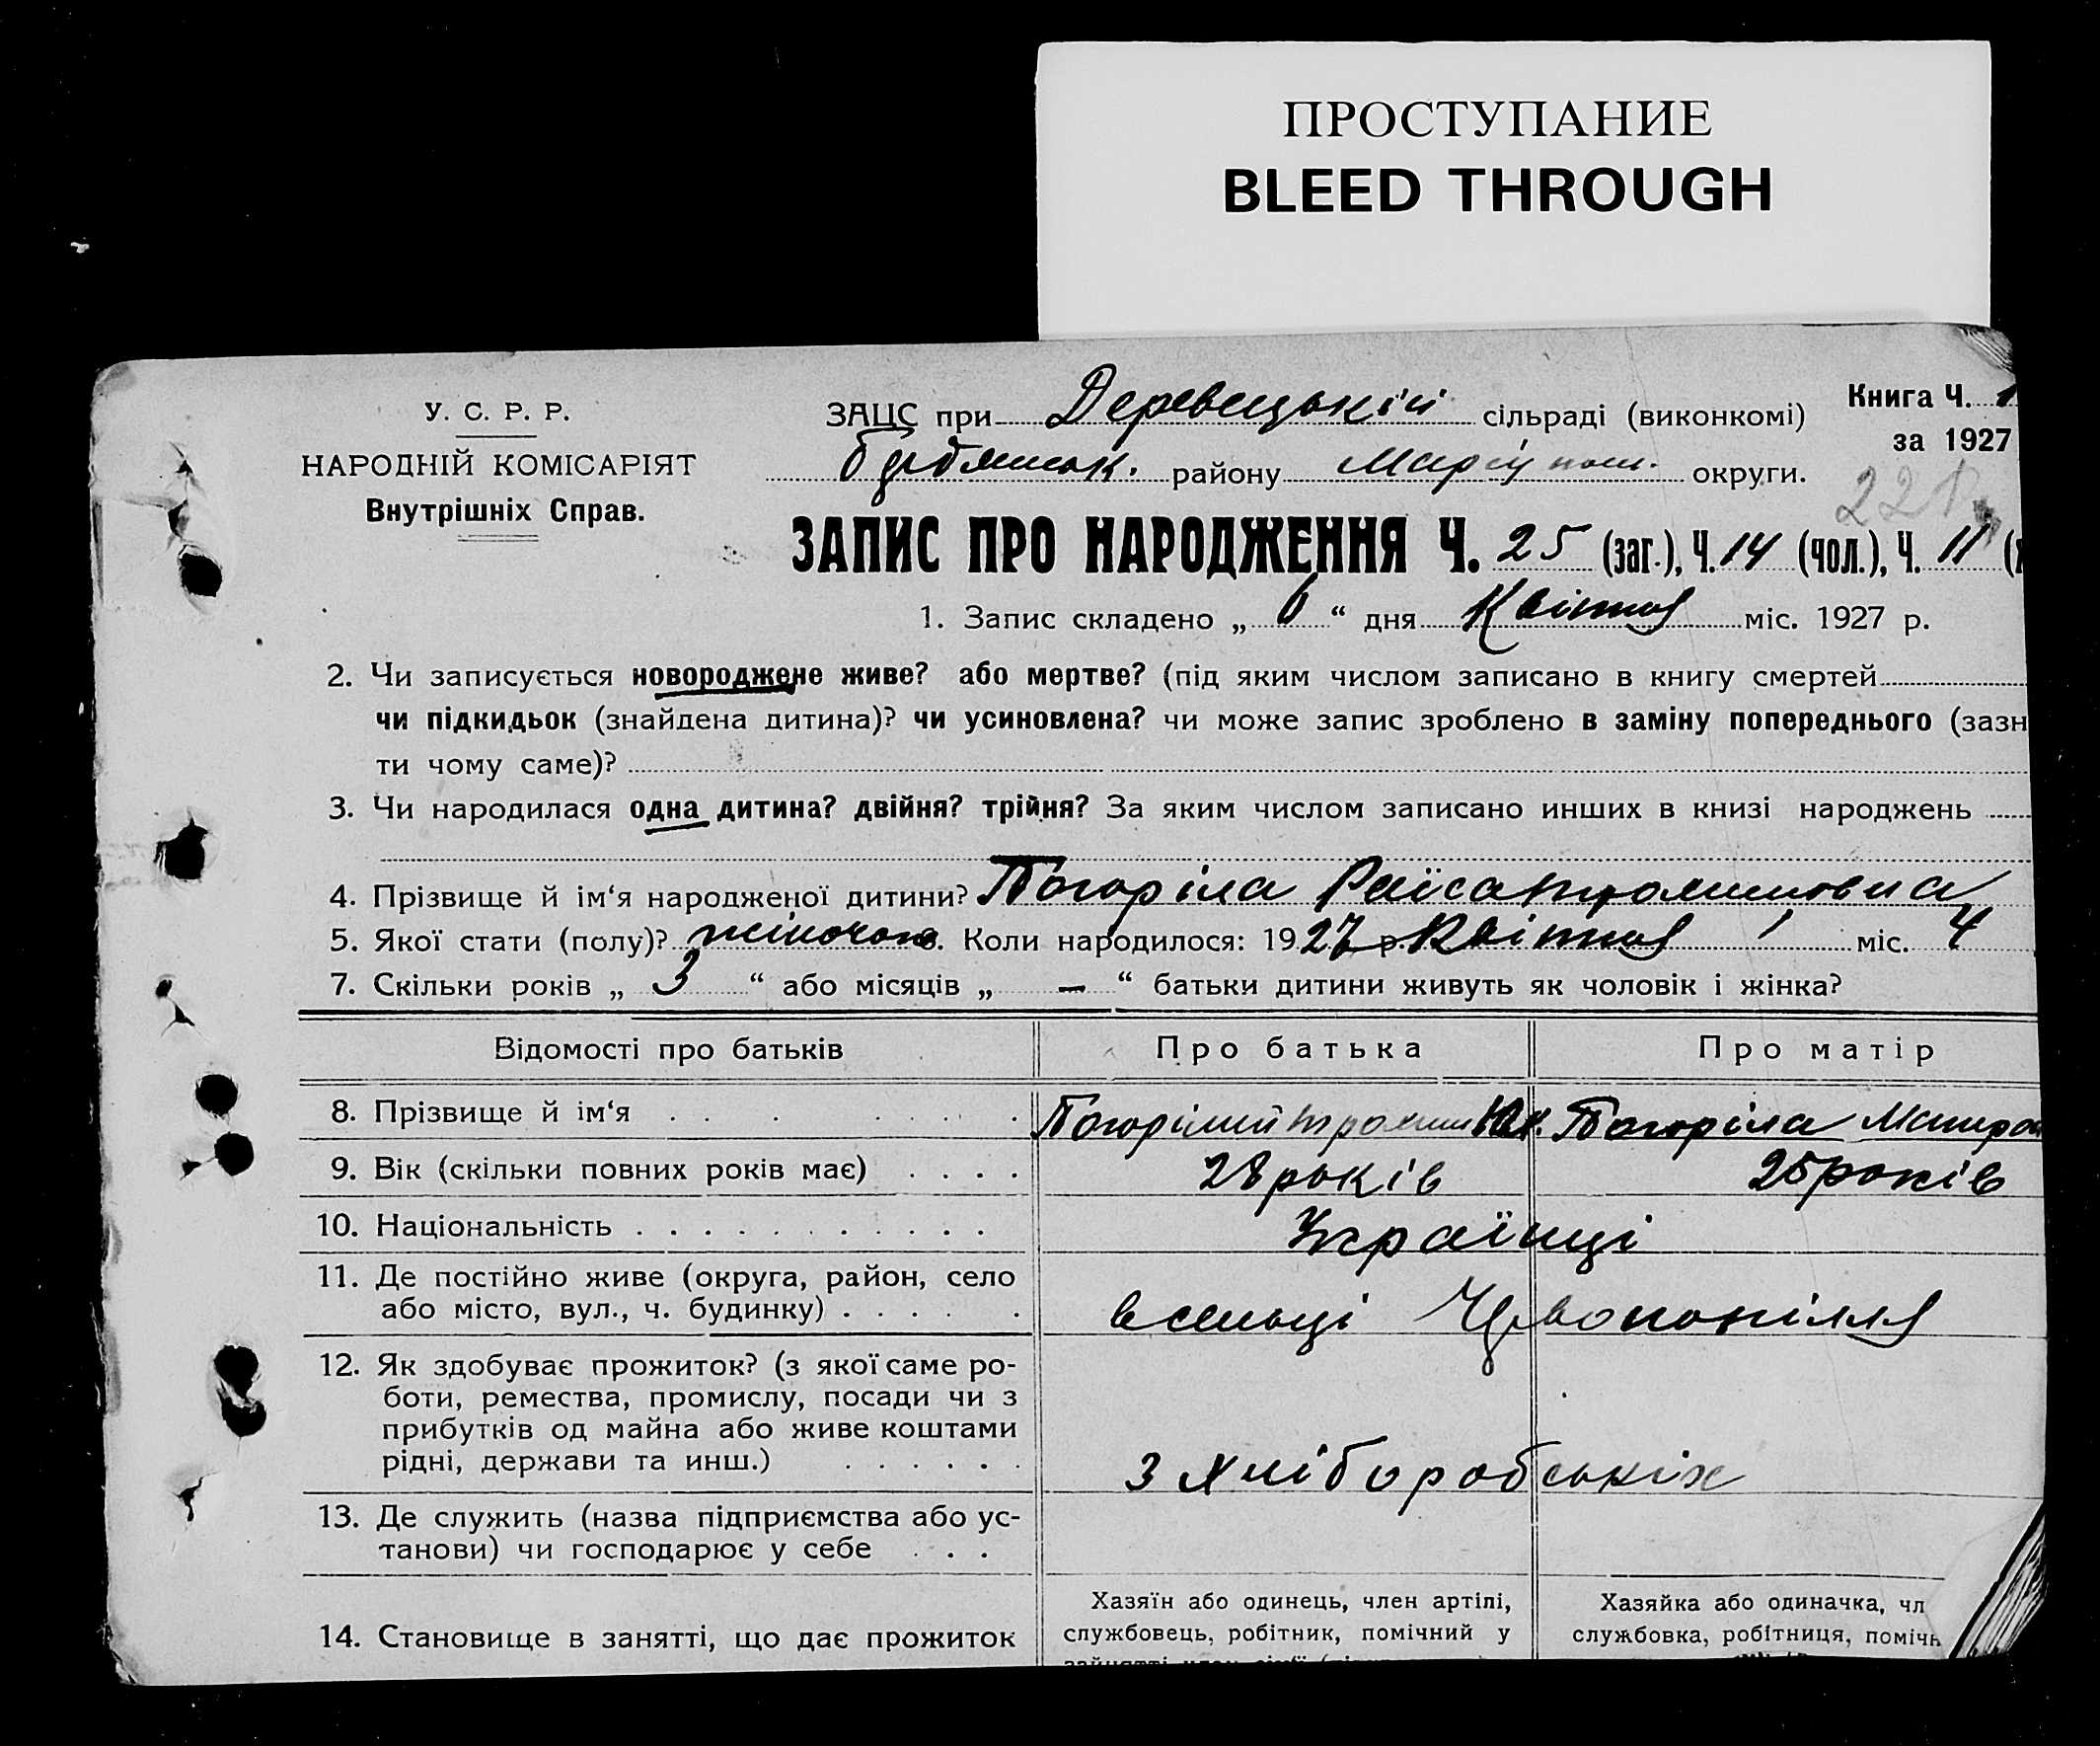 ПРОСТУПАНИЕ
BLEED THROUGH
У. С. Р. Р.
НАРОДНІЙ КОМІСАРІЯТ
Внутрішніх Справ.
ЗАЦС при Деревецькій сільраді (виконкомі)
Книга Ч. 1
за 1927
району Маріупол. округи.
ЗАПИС ПРО НАРОДЖЕННЯ Ч. 25 (заг.), Ч. 14 (чол.), Ч. 11
1. Запис складено „ 6 “ дня Квітня міс. 1927 р.
2. Чи записується новороджене живе? або мертве? (під яким числом записано в книгу смертей
чи підкидьок (знайдена дитина)? чи усиновлена? чи може запис зроблено в заміну попереднього (зазн
ти чому саме)?
3. Чи народилася одна дитина? двійня? трійня? За яким числом записано инших в книзі народжень
4. Прізвище й ім‘я народженої дитини? Погоріла Раїса Трохимовна
5. Якої стати (полу)? жіночої. Коли народилося: 1927 р. Квітня міс. 4
7. Скільки років „ 3 “ або місяців „ — “ батьки дитини живуть як чоловік і жінка?
Відомості про батьків Про батька Про матір
8. Прізвище й ім‘я Погорілий Трохим Як. Погоріла Мотро
9. Вік (скільки повних років має) 28 років 25 років
10. Національність Українці
11. Де постійно живе (округа, район, село
або місто, вул., ч. будинку) в сельці Червонопілля
12. Як здобуває прожиток? (з якої саме ро-
боти, ремества, промислу, посади чи з
прибутків од майна або живе коштами
рідні, держави та инш.) з хліборобськіх
13. Де служить (назва підприємства або ус-
танови) чи господарює у себе
14. Становище в занятті, що дає прожиток
Хазяїн або одинець, член артілі,
службовець, робітник, помічний у
Хазяйка або одиначка, чл
службовка, робітниця, помічн